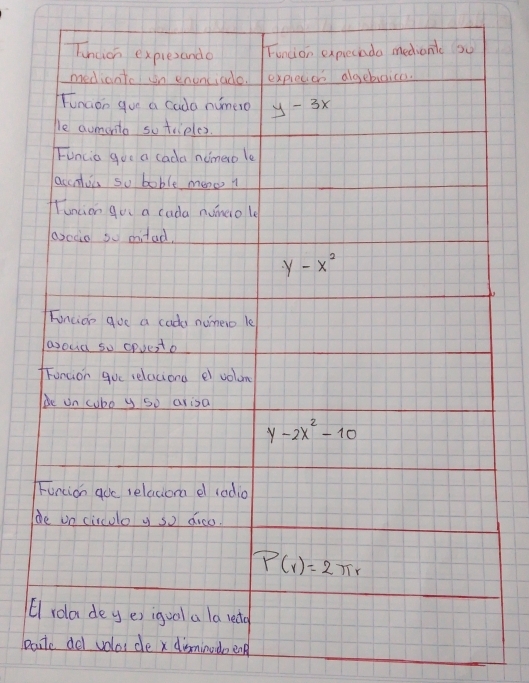 Función expresando
mediante un enunciado.
Función expresada mediante su
expresión algebraica.
Función que a cada número
le aumenta su triples.
y - 3x
Funcio que a cada número le
su boble menos 1
Función que a cada número le
asocia su mitad.
y - x²
Función que a cada número le
asocia su opuesto
Función que relaciona el volum
de un cubo y su arisa
y - 2x² - 10
Función que relaciona el radio
de un circulo y su área.
P(r) = 2πr
El valor de y es igual a la
parte del valor de x en 8